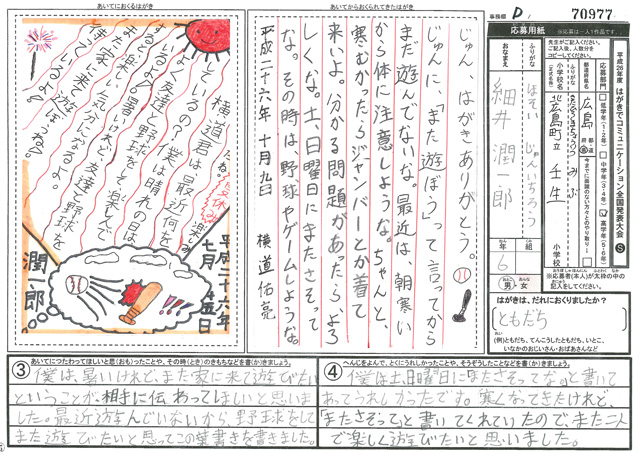 あいてにおくるはがき
あいてからおくられてきたはがき
事務局
D
70977
応募用紙
※応募は一人1作品です。
平成26年度
はがきでコミュニケーション全国発表大会
S
応募部門
低学年(1・2年)
中学年(3・4年)
高学年(5・6年)
都道府県名
広島
都道府県
小学校名
北広島町立
壬生
小学校
ふりがな
ほそい じゅんいちろう
おなまえ
細井 潤一郎
年
組
6
男・女
はがきは、だれにおくりましたか？
ともだち
(例)ともだち、てんこうしたともだち、いとこ、
いなかのおじいさん・おばあさんなど
じゅん はがきありがとう。
じゅんに「また遊ぼう」って言ってから
まだ遊んでないな。最近は、朝寒い
から体に注意しような。ちゃんと、
寒むかったらジャンバーとか着て
来いよ。分かる問題があったら、よろ
しくな。土、日曜日にまたさそって
な。その時は、野球やゲームしような。
平成二十六年 十月九日
横道佑亮
横道君は、最近何を
しているの？僕は晴れの日は、
よく友達と野球をして楽しんで
いるよ。暑いけれど、友達と野球を
すると楽しい気分になるよ。
また家に来て遊ぼうね。
平成二十六年
七月
潤一郎
③
あいてにつたわってほしいと思(おも)ったことや、その時(とき)のきもちなどを書(か)きましょう。
僕は、暑いけれど、また家に来て遊びたい
ということが相手に伝わってほしいと思いま
した。最近遊んでいないから、野球をして
また遊びたいと思ってこの葉書きを書きました。
④
へんじをよんで、とくにうれしかったことや、そうぞうしたことなどを書(か)きましょう。
僕は土、日曜日にまたさそってな。と書いて
あってうれしかったです。寒くなってきたけれど、
「またさそって」と書いてくれていたので、また二人
で楽しく遊びたいと思いました。